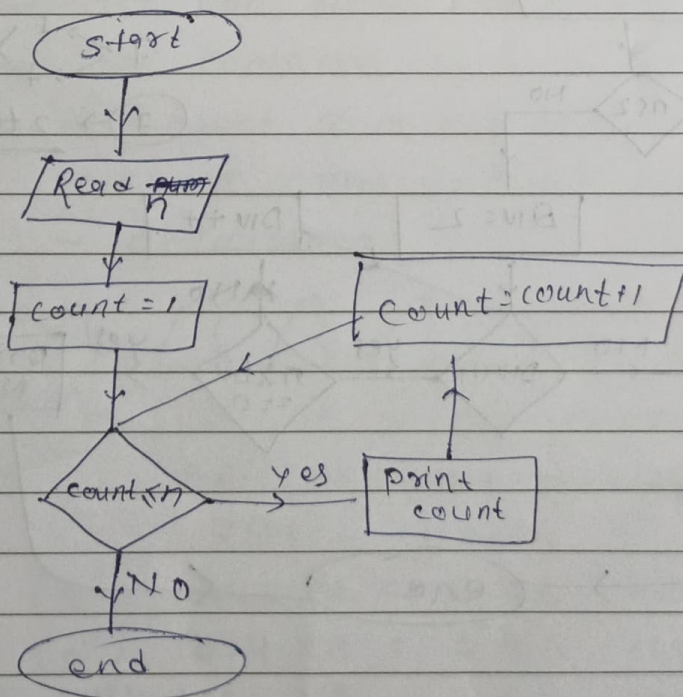 start
Read n
count = 1
count = count + 1
count ≤ n
yes
print
count
NO
end